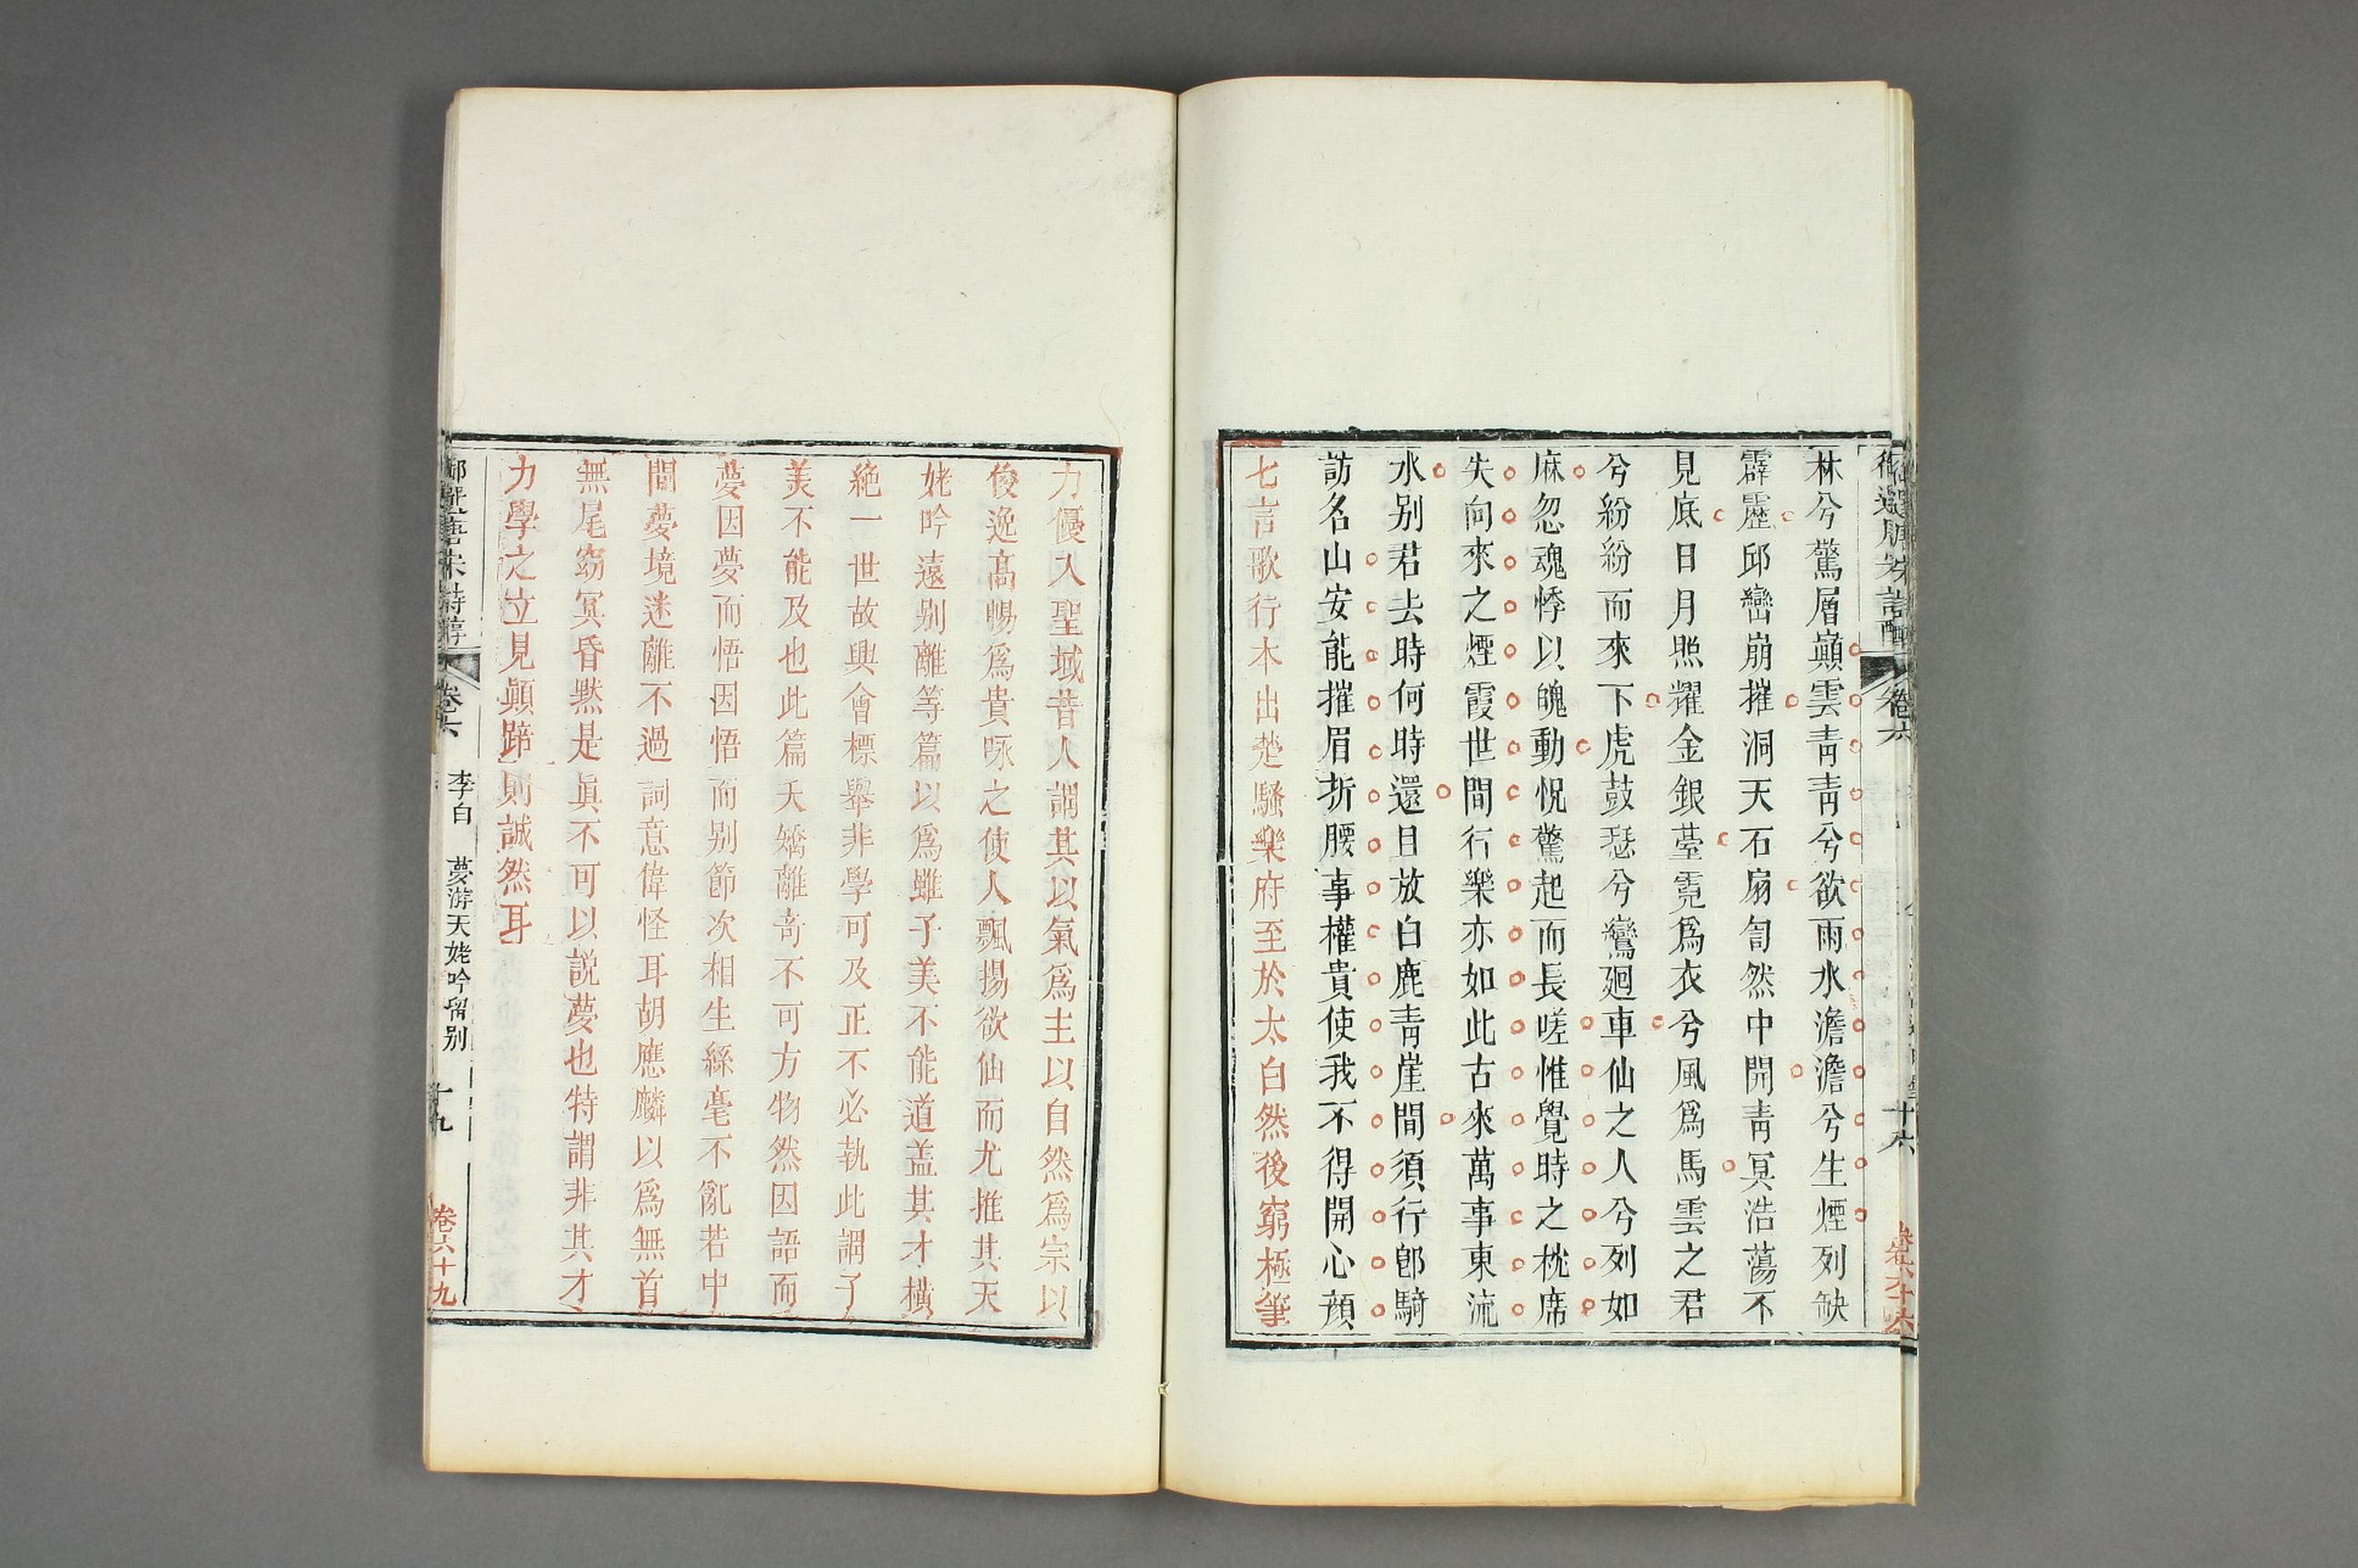 御選唐宋詩醇
卷六
十六
卷六十六
林兮驚層巔雲青青兮欲雨水澹澹兮生煙列缺
霹靂邱巒崩摧洞天石扇訇然中開青冥浩蕩不
見底日月照耀金銀臺霓爲衣兮風爲馬雲之君
兮紛紛而來下虎鼓瑟兮鸞廻車仙之人兮列如
麻忽魂悸以魄動怳驚起而長嗟惟覺時之枕席
失向來之煙霞世間行樂亦如此古來萬事東流
水别君去時何時還且放白鹿青崖間須行卽騎
訪名山安能摧眉折腰事權貴使我不得開心顔
七言歌行本出楚騷樂府至於太白然後窮極筆
力優入聖域昔人謂其以氣爲主以自然爲宗以
俊逸高暢爲貴咏之使人飄揚欲仙而尤推其天
姥吟遠别離等篇以爲雖子美不能道盖其才橫
絶一世故興會標舉非學可及正不必執此謂子
美不能及也此篇夭矯離奇不可方物然因語而
夢因夢而悟因悟而别節次相生絲毫不亂若中
間夢境迷離不過詞意偉怪耳胡應麟以爲無首
無尾窈冥昏黙是眞不可以説夢也特謂非其才
力學之立見顛踣則誠然耳
御選唐宋詩醇
卷六
李白
夢游天姥吟留别
十九
卷六十九